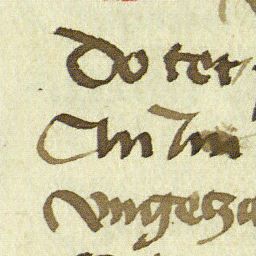 Do ter
An Im
Vngeha